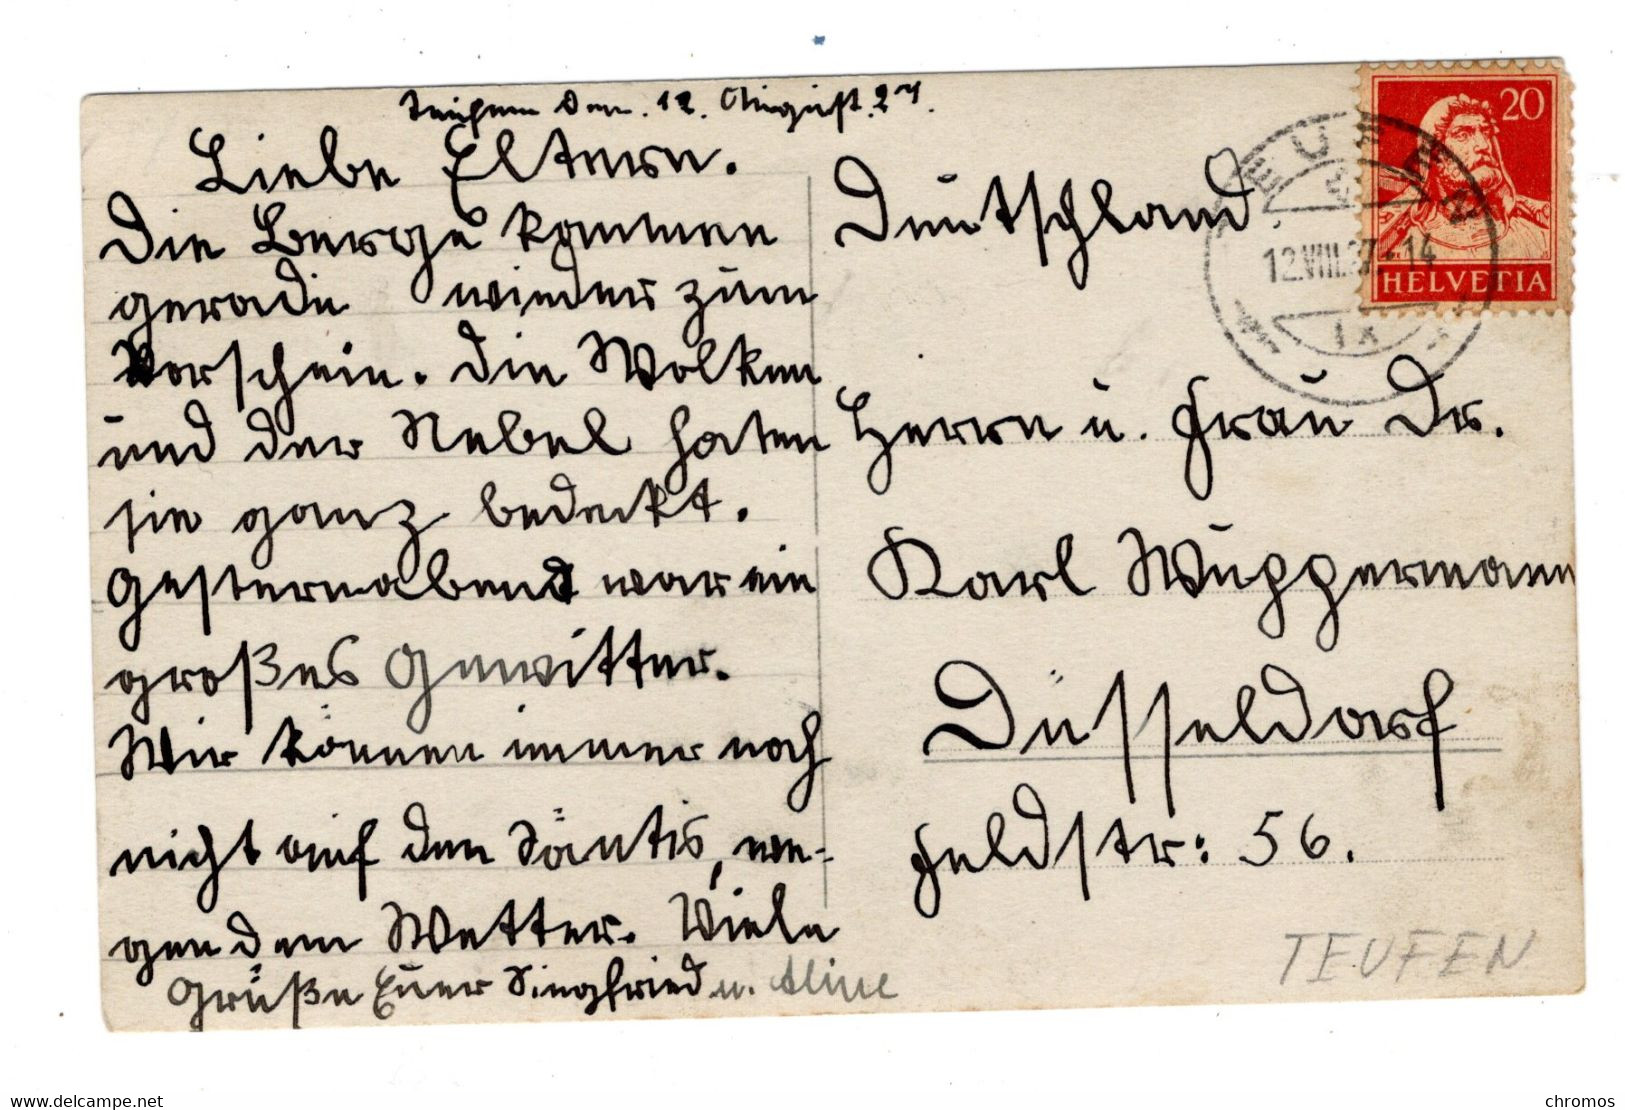 Teufen den. 12. August. 27.
Liebe Eltern.
Die Berge kommen
gerade wieder zum
Vorschein. Die Wolken
und der Nebel haten
sie ganz bedeckt.
Gesternabend war ein
großes Gewitter.
Wir können immer noch
nicht auf den Säntis, we-
gen dem Wetter. Viele
Grüße Euer Siegfried u. Aline
Deutschland.
Herrn u. Frau Dr.
Karl Wuppermann
Düsseldorf
Feldstr: 56.
TEUFEN
20
HELVETIA
TEUFEN
12.VIII.27.-14
delcampe.net
chromos